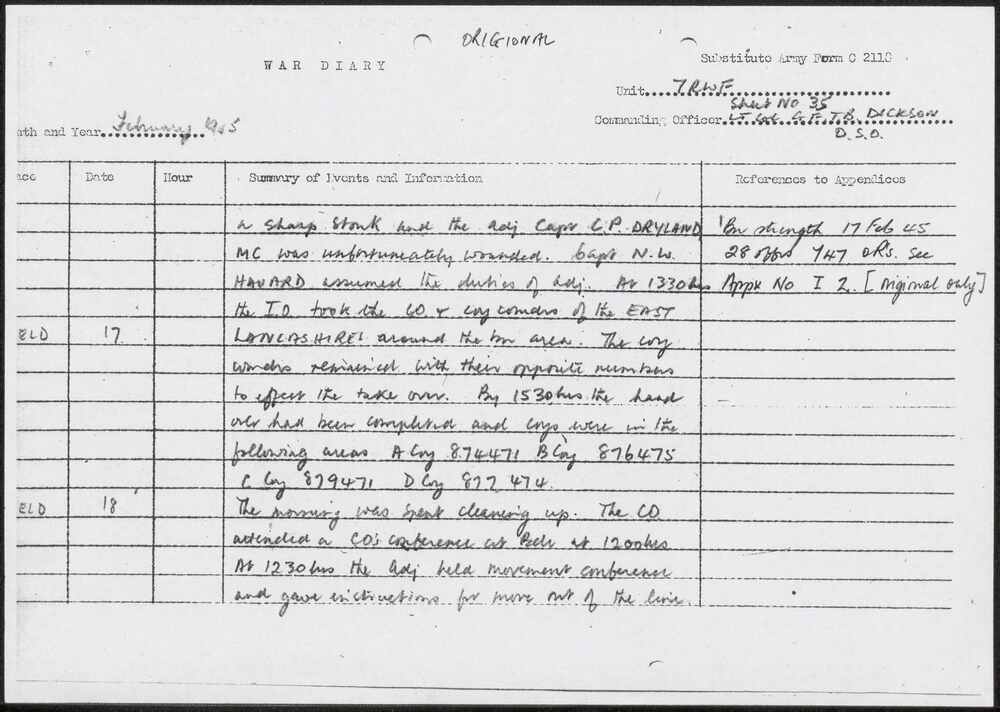 ORIGIONAL
WAR DIARY
Substitute Army Form C 2118
Unit 7RWF
Sheet No 35
Commanding Officer Lt Col G.F.T.B. DICKSON
D.S.O.
nth and Year February 1945
ace Date Hour Summary of Events and Information References to Appendices
a sharp stonk and the adj Capt C.P. DRYLAND Bn strength 17 Feb 45
MC was unfortunately wounded. Capt N.W. 28 offrs 747 ORs. See
HAVARD assumed the duties of adj. At 1330 hrs Appx No I 2. [original only]
the I.O took the CO & coy comdrs of the EAST
ELD 17 LANCASHIRES around the bn area. The coy
comdrs remained with their opposite numbers
to effect the take over. By 1530 hrs the hand
over had been completed and coys were in the
following areas A Coy 874471 B Coy 876475
C Coy 879471 D Coy 877474.
ELD 18 The morning was spent cleaning up. The CO
attended a CO's conference at Bde at 1200hrs
At 1230 hrs the Adj held movement conference
and gave instructions for move out of the line.